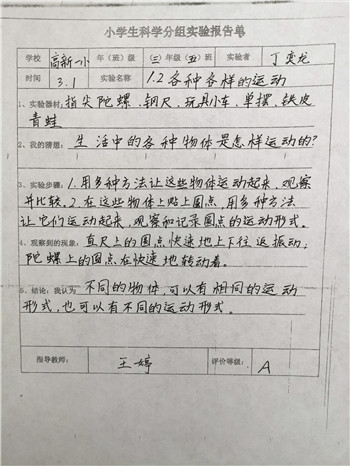 小学生科学分组实验报告单
学校 高新一小 年（班）级 （三）年级（五）班 实验者 丁奕龙
时间 3.1 实验名称 1.2各种各样的运动
1、实验器材：指尖陀螺、钢尺、玩具小车、单摆、铁皮
青蛙
2、我的猜想：生活中的各种物体是怎样运动的?
3、实验步骤：1.用多种方法让这些物体运动起来，观察
并比较。2.在这些物体上贴上圆点，用多种方法
让它们运动起来，观察和记录圆点的运动形式。
4、观察到的现象：直尺上的圆点快速地上下往返振动；
陀螺上的圆点在快速地转动着。
5、结论：我认为 不同的物体，可以有相同的运动
形式，也可以有不同的运动形式。
指导教师： 王婷 评价等级： A